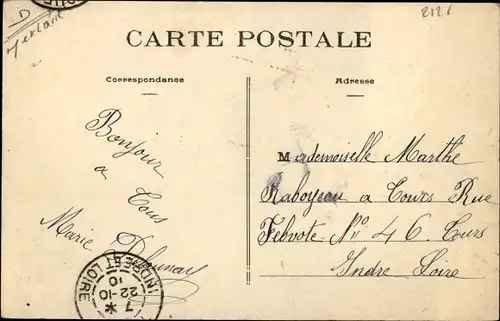 2121
CARTE POSTALE
Correspondance
Adresse
Bonjour
a
Tous
Marie Delaunay
Mademoiselle Marthe
Raboyeau a Tours Rue
Febvote N° 46 Tours
Indre Loire
INDRE ET LOIRE
7 *
22-10
10